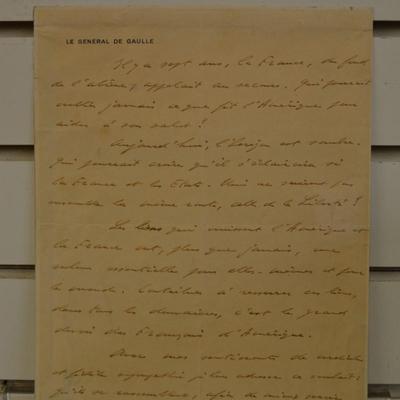 LE GÉNÉRAL DE GAULLE
Il y a sept ans, la France, du fond
de l'abîme, appelait au secours. Qui pourrait
oublier jamais ce que fit l'Amérique pour
aider à son salut !
Aujourd'hui, l'horizon est sombre.
Qui pourrait croire qu'il s'éclaircira si
la France et les États-Unis ne suivent pas
ensemble la même route, celle de la Liberté !
Les liens qui unissent l'Amérique et
la France ont, plus que jamais, une
valeur essentielle pour elles-mêmes et pour
le monde. Contribuer à resserrer ces liens,
dans tous les domaines, c'est le grand
devoir des Français d'Amérique.
Avec mes sentiments de
et fidèle sympathie je leur adresse ce souhait :
qu'ils se rassemblent, afin de mieux servir